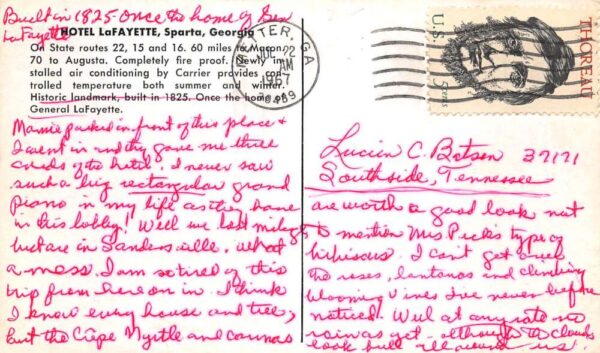 Built in 1825 Once the home of Gen
LaFayette
HOTEL LaFAYETTE, Sparta, Georgia
On State routes 22, 15 and 16. 60 miles to Macon,
70 to Augusta. Completely fire proof. Newly in-
stalled air conditioning by Carrier provides con-
trolled temperature both summer and winter.
Historic landmark, built in 1825. Once the home of
General LaFayette.
Mamie parked in front of this place &
I went in and they gave me three
cards of the hotel. I never saw
such a big rectangular grand
piano in my life as they have
in this lobby! Well we last
but are in Sandersville, what
a mess. I am so tired of this
trip from here on in. I think
I know every house and tree,
but the Crêpe Myrtle and cannas
METTER, GA
22
AM
1967
30439
U.S. 5 cents
THOREAU
Lucien C. Batson 37171
Southside, Tennessee
are worth a good look not
to mention Mrs Pick's type of
hibiscus. I can't get over
the roses, lantanas and climbing
blooming vines I've never before
noticed. Well at any rate no
rain as yet - although the clouds
look full all around us.